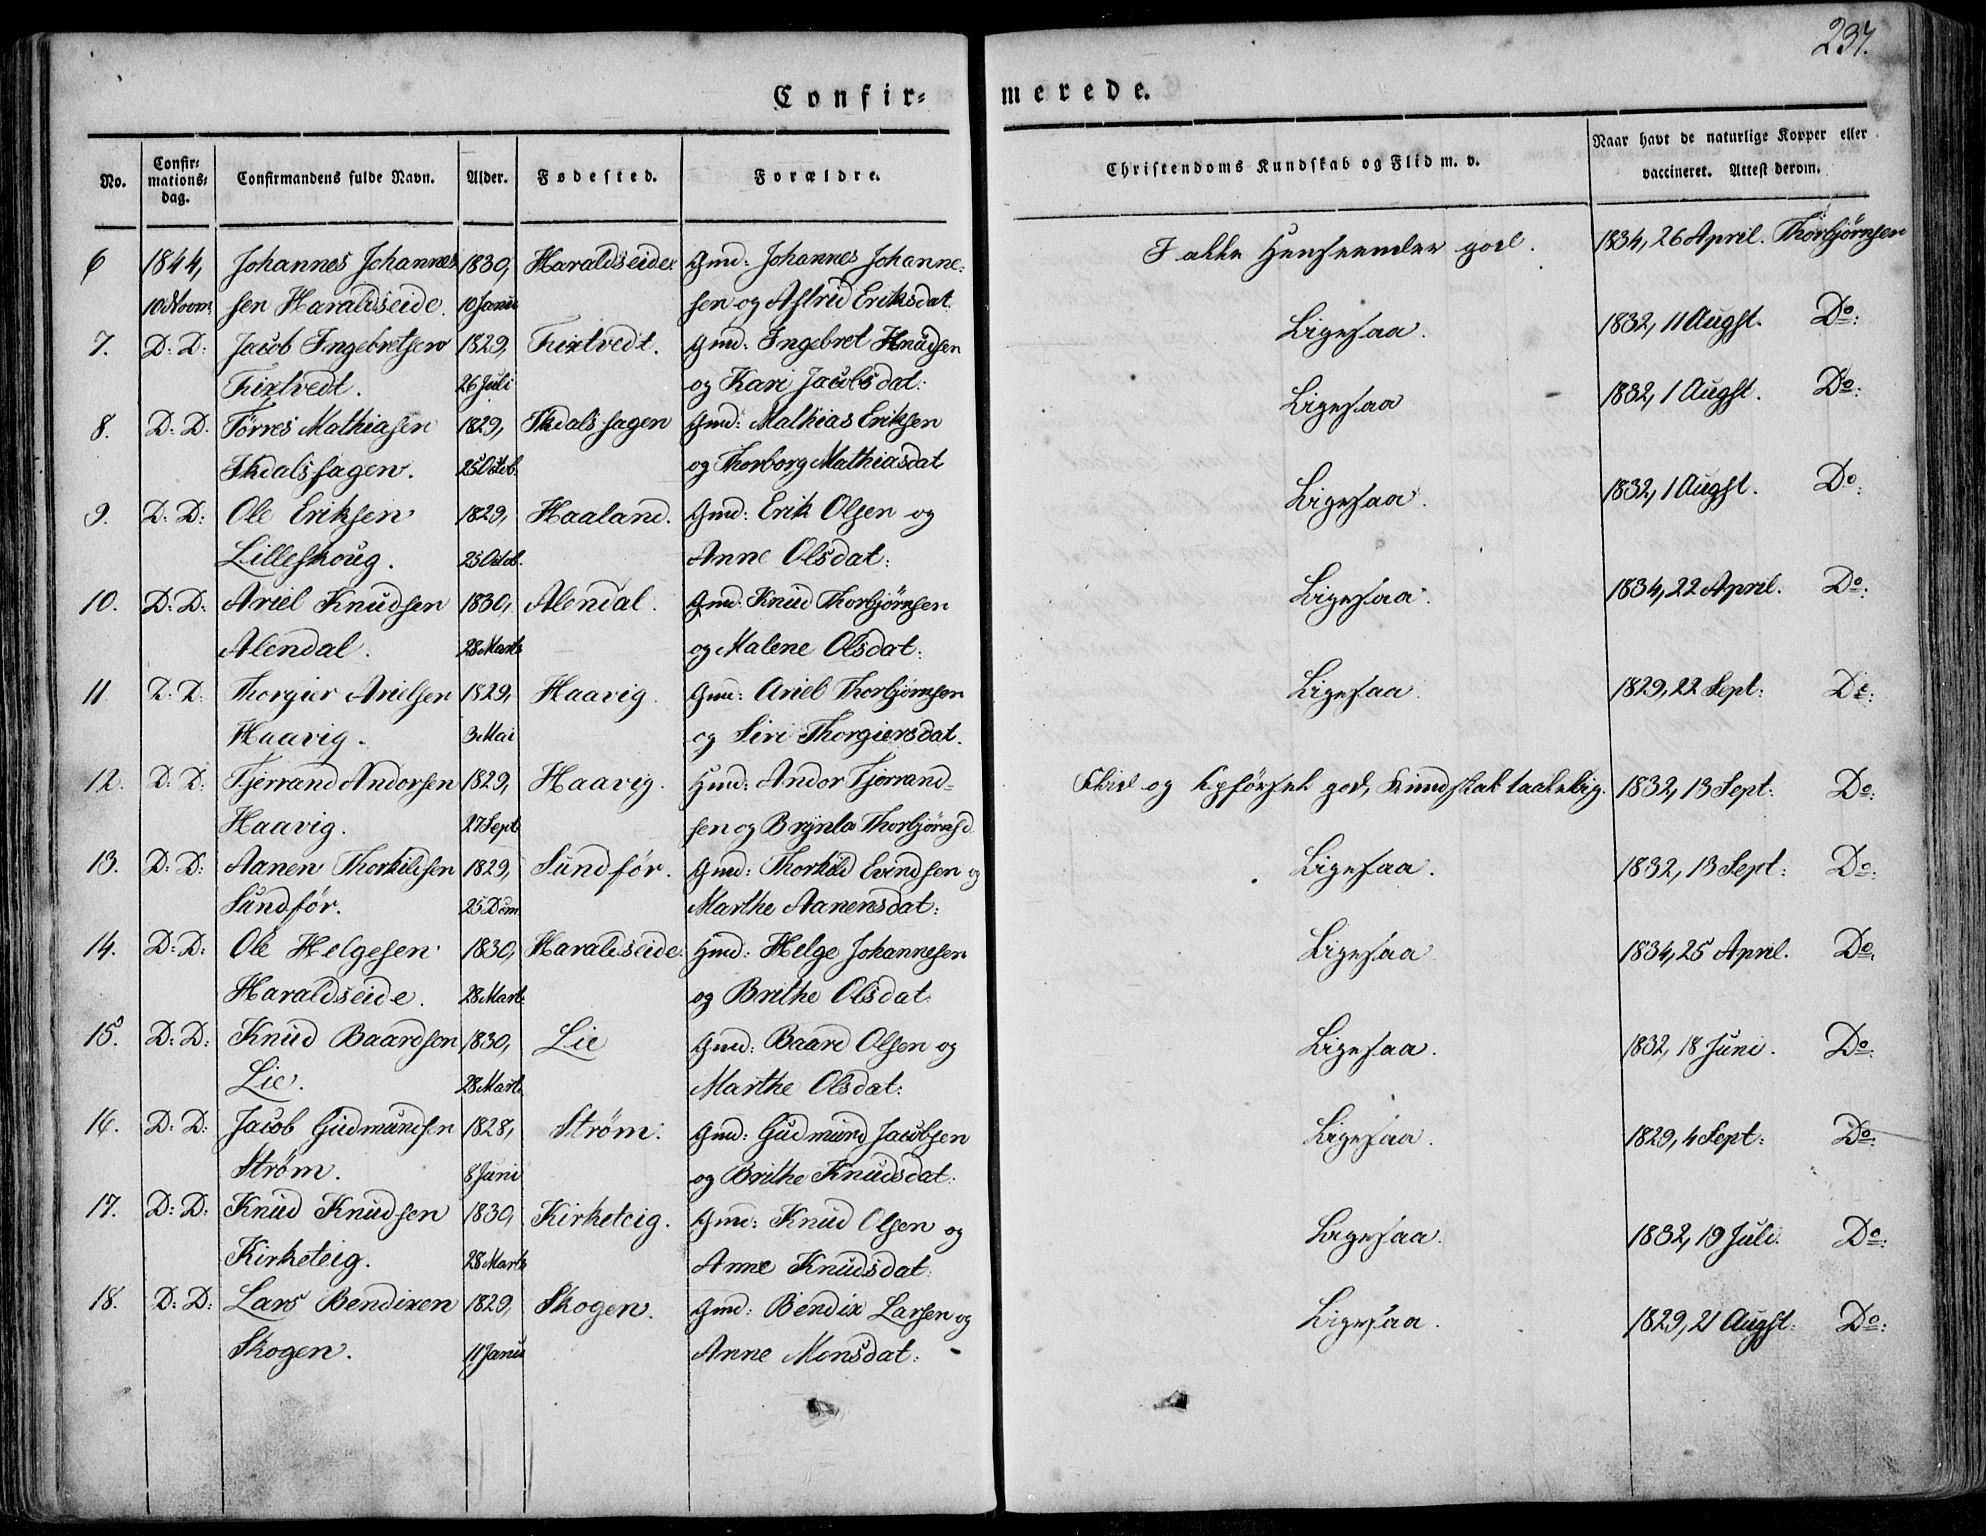 237.
Confir= merede.
No. Confir= mations= dag. Confirmandens fulde Navn. Alder. Fødested. Forældre. Christendoms Kundskab og Flid m. v. Naar havt de naturlige Kopper eller vaccineret. Attest derom.
6 1844, Johannes Johannes 1830, Haraldseide. Gmd: Johannes Johanne= I alle Henseender god. 1834, 26 April. Thorbjørnsen
10 Novm. sen Haraldseide. 10 Janu sen og Astrid Eriksdat.
7. D: D: Jacob Ingebretsen 1829, Tixtvedt. Gmd: Ingebret Knudsen Ligesaa. 1832, 11 Augst. Do:
Tixtvedt. 26 Juli og Kari Jacobsdat:
8. D: D. Törres Mathiasen 1829, Skdalshagen Gmd: Mathias Eriksen Ligesaa 1832, 1 Augst. Do:
Skdalshagen. 25 Octob. og Thorborg Mathiasdat
9. D: D: Ole Eriksen 1829, Haaland. Gmd: Erik Olsen og Ligesaa. 1832, 1 Augst. Do:
Lilleskoug. 25 Octob. Anne Olsdat:
10. D: D: Ariel Knudsen 1830, Alendal. Gmd: Knud Thorbjørnsen Ligesaa. 1834, 22 April. Do:
Alendal. 28 Marts og Malene Olsdat:
11 D: D: Thorgier Arielsen 1829, Haavig. Gmd: Ariel Thorbjørnsen Ligesaa 1829, 22 Sept: Do:
Haavig. 3 Mai og Siri Thorgiersdat.
12. D: D: Tjerrand Andorsen 1829, Haavig. Hmd: Andor Tjerrand= Flid og Opførsel god, Kundskab taalelig. 1832, 13 Sept: Do:
Haavig. 27 Sept sen og Brynla Thorbjørnsd.
13. D: D: Aanen Thorkildsen 1829, Sundför. Gmd: Thorkild Evindsen og Ligesaa. 1832, 13 Sept: Do:
Sundför. 25 Dcm. Marthe Aanensdat:
14. D: D: Ole Helgesen 1830, Haraldseide. Hmd: Helge Johannesen Ligesaa 1834, 25 April. Do.
Haraldseide. 28 Mart. og Brithe Olsdat:
15. D: D: Knud Baardsen 1830, Lie Gmd: Baard Olsen og Ligesaa. 1832, 18 Juni. Do:
Lie. 28 Mart. Marthe Olsdat:
16. D: D: Jacob Gudmundsen 1828, Strøm. Gmd: Gudmund Jacobsen Ligesaa. 1829, 4 Sept: Do:
Strøm. 8 Juni og Brithe Knudsdat:
17. D: D: Knud Knudsen 1830, Kirketeig. Gmd: Knud Olsen og Ligesaa. 1832, 19 Juli. Do:
Kirketeig. 28 Marts Anne Knudsdat:
18. D: D: Lars Bendixen 1829, Skogen. Gmd: Bendix Larsen og Ligesaa. 1829, 21 Augst. Do:
Skogen. 11 Janu Anne Monsdat: